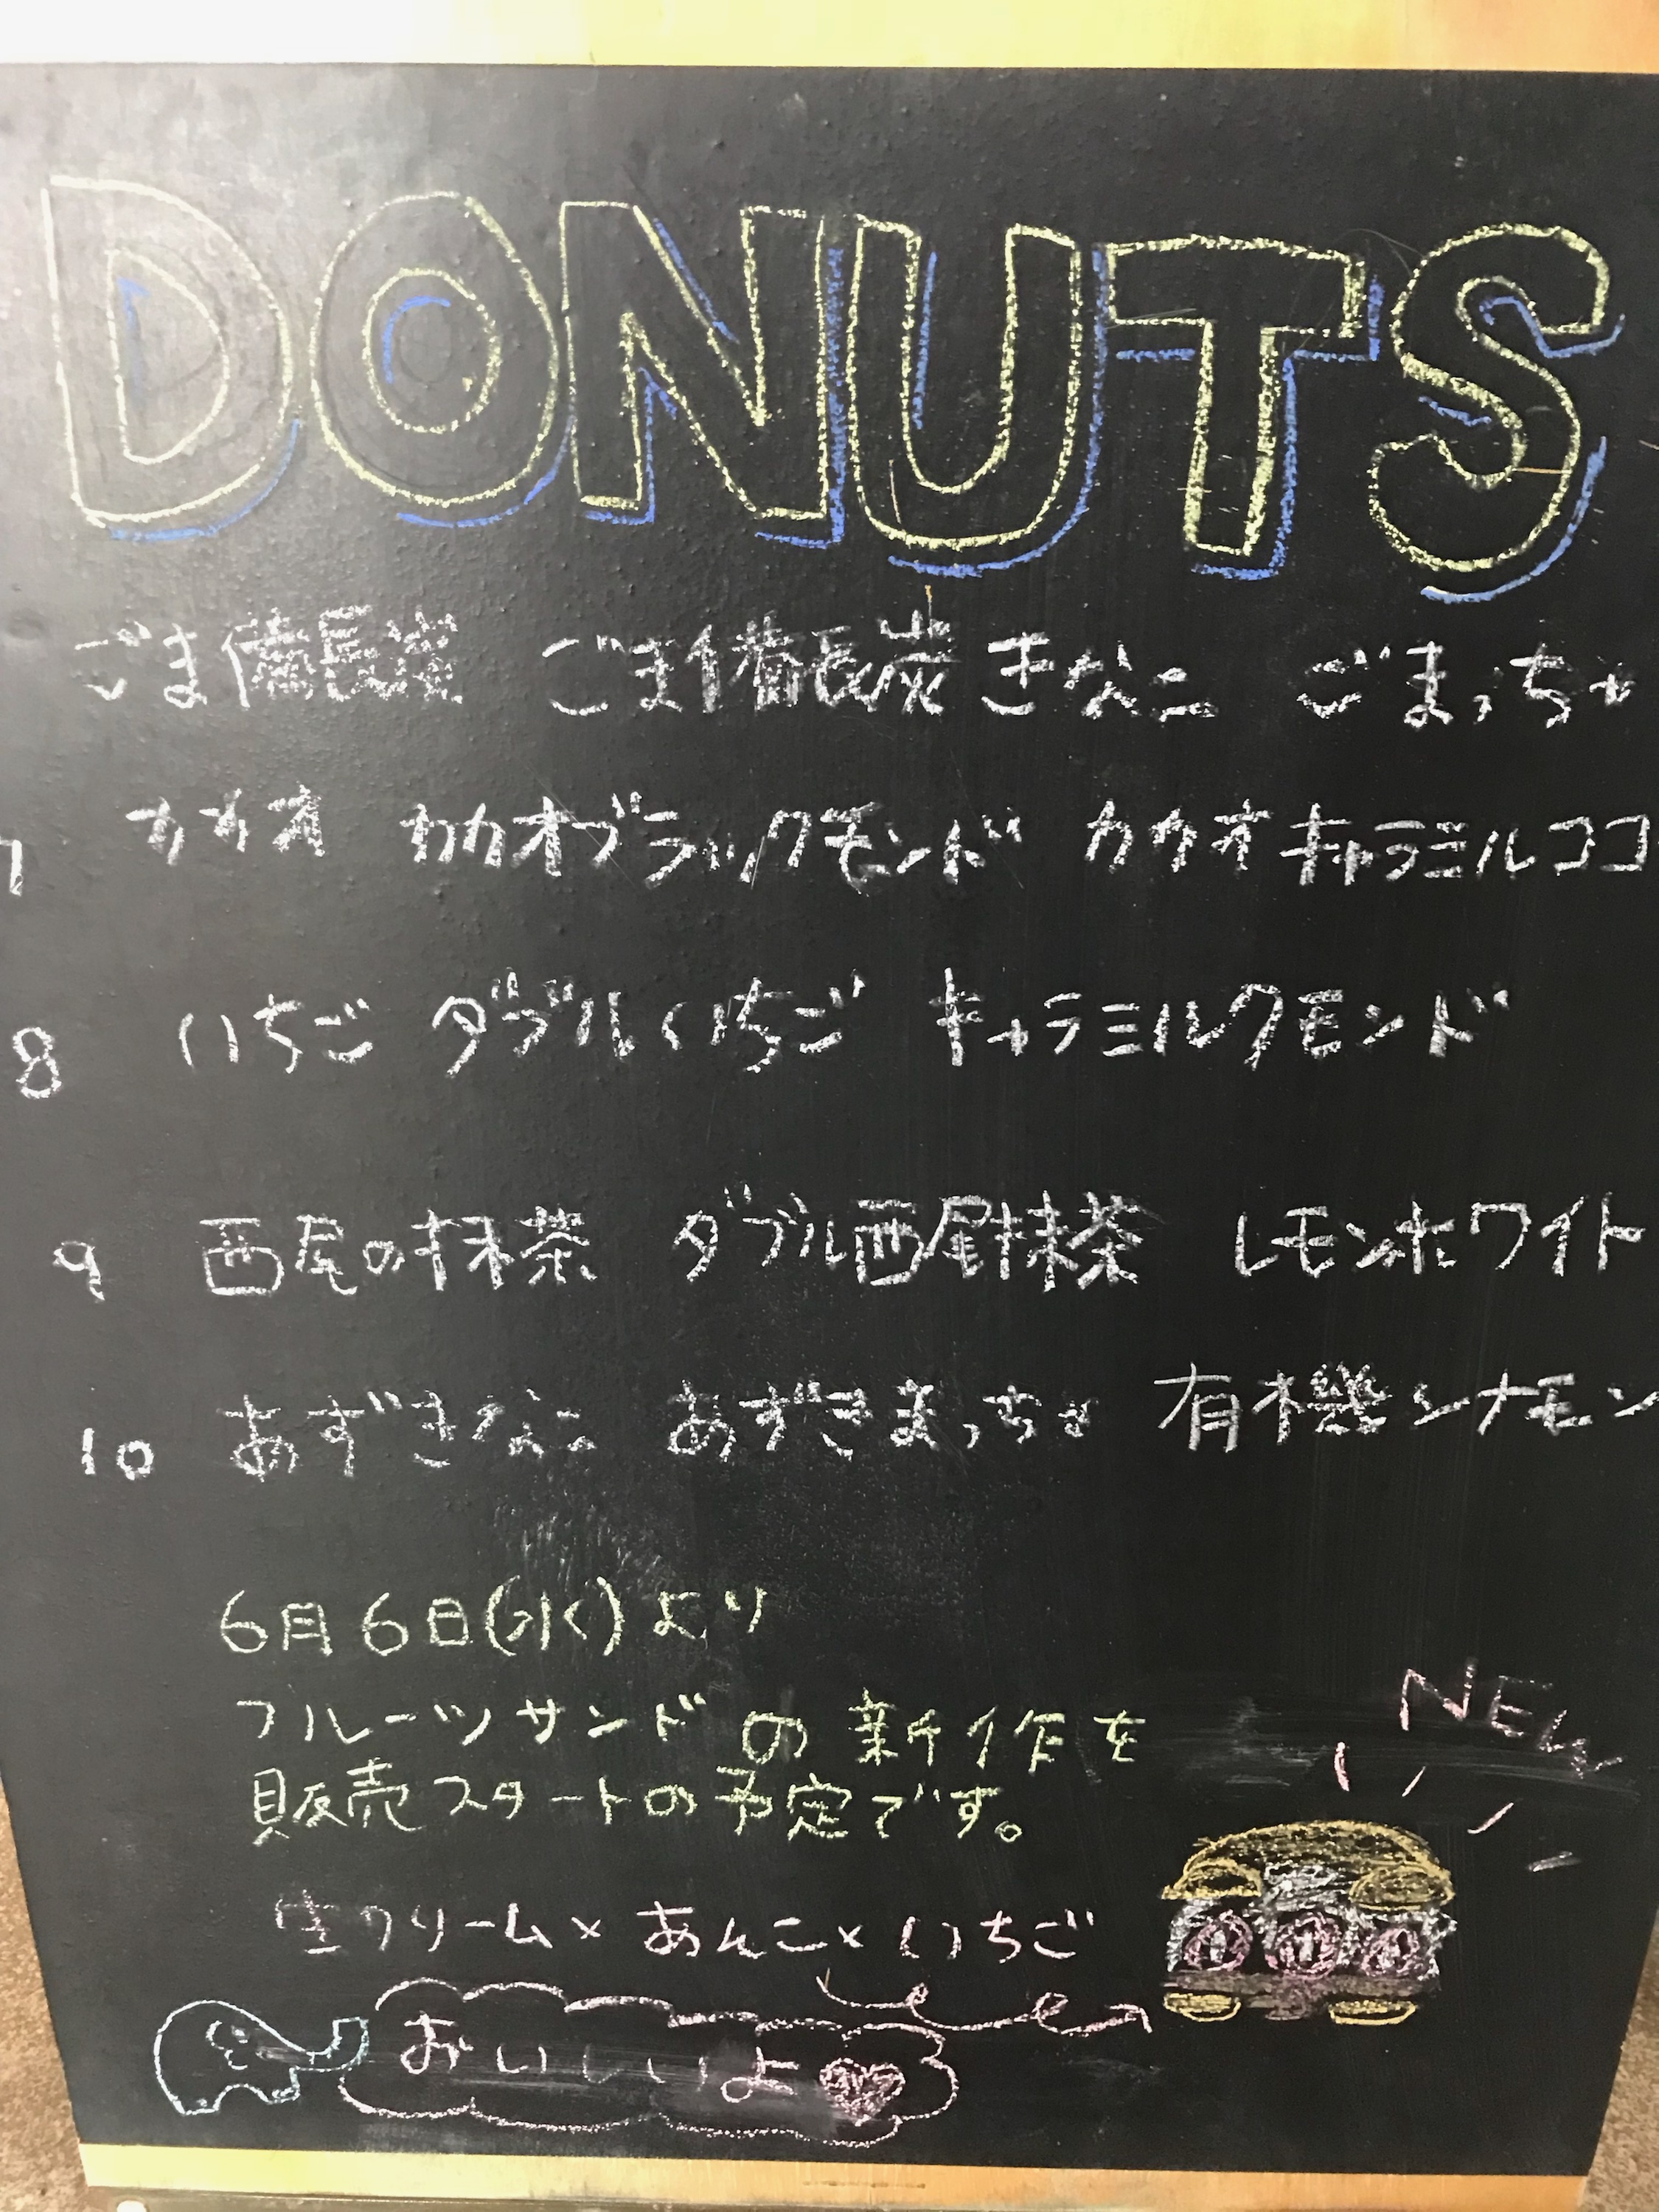 DONUTS
ごま備長炭 ごま備長炭きなこ ごまっちゃ
7 カカオ カカオブラックモンド カカオキャラミルココ
8 いちご ダブルいちご キャラミルクモンド
9 西尾の抹茶 ダブル西尾抹茶 レモンホワイト
10 あずききなこ あずきまっちゃ 有機シナモン
6月6日(水)より
フルーツサンドの新作を
販売スタートの予定です。
NEW
生クリーム×あんこ×いちご
おいしいよ